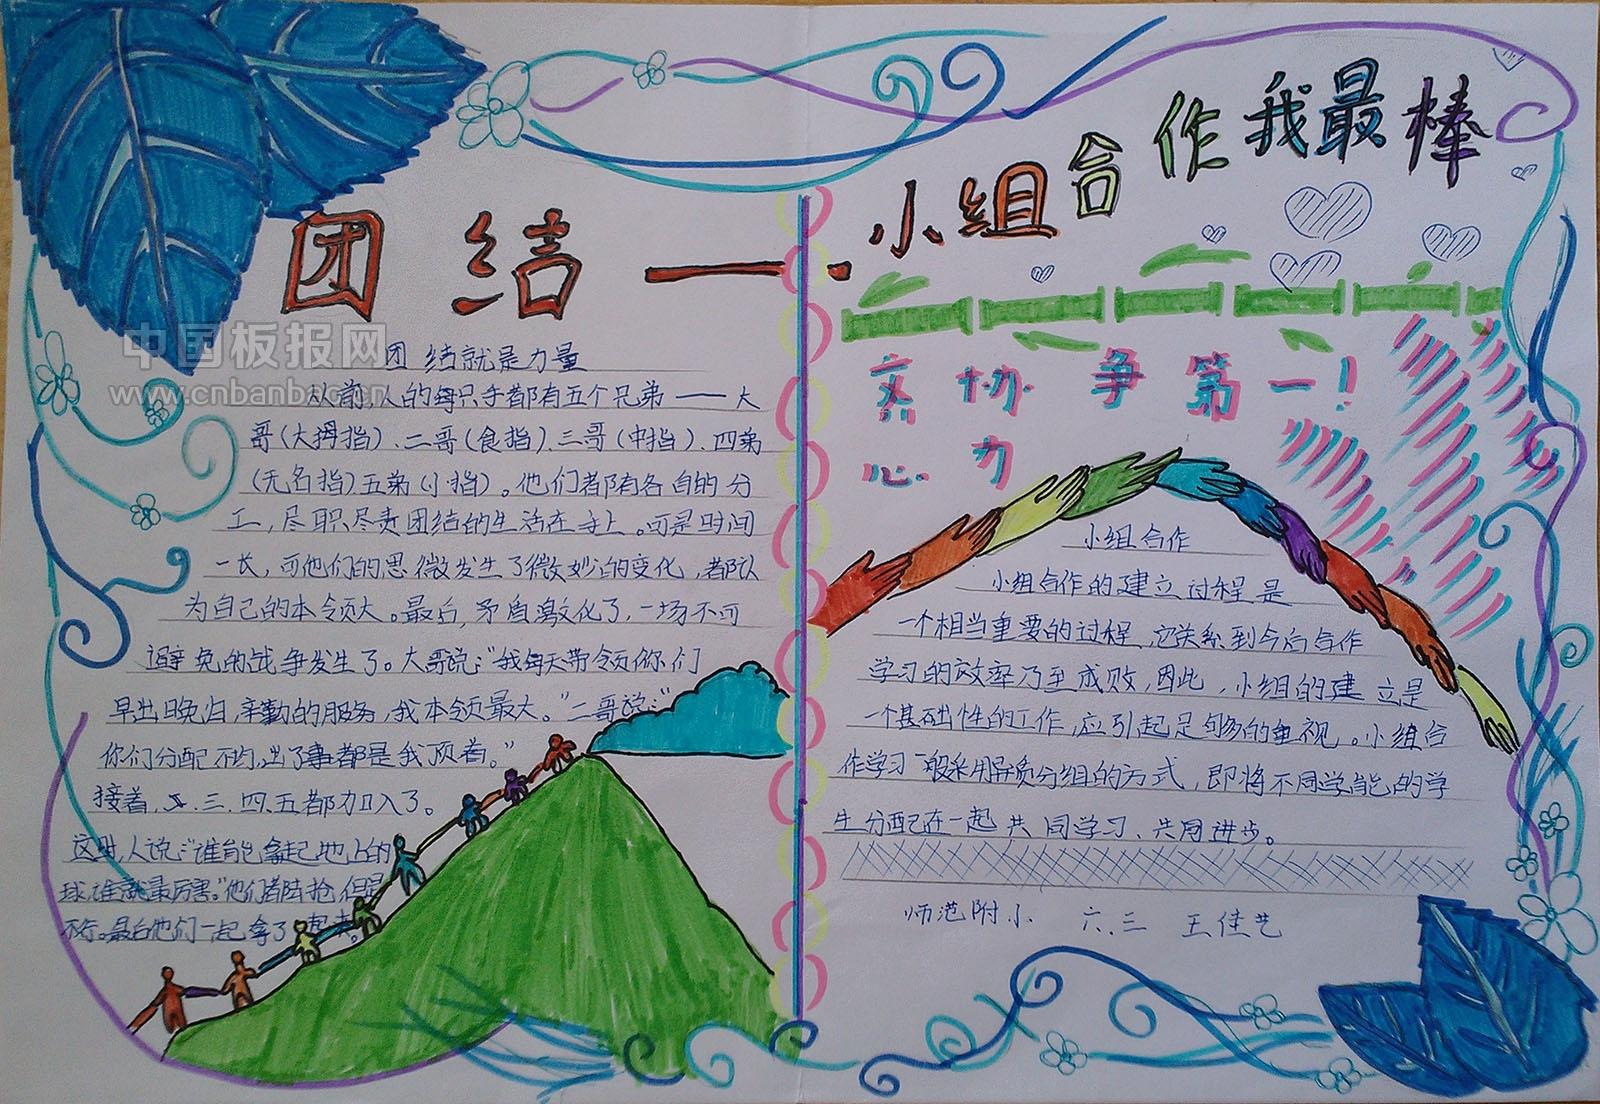 团结——小组合作我最棒
中国板报网
www.cnbanbao.cn
团结就是力量
从前,人的每只手都有五个兄弟——大
哥(大拇指)、二哥(食指)、三哥(中指)、四弟
(无名指)五弟(小指)。他们都有各自的分
工,尽职尽责团结的生活在手上。可是时间
一长,可他们的思微发生了微妙的变化,都认
为自己的本领大。最后,矛盾激化了,一场不可
避免的战争发生了。大哥说:“我每天带领你们
早出晚归,辛勤的服务,我本领最大。”二哥说:“
你们分配不均,出了事都是我顶着。”
接着,三、四、五都加入了。
这时,人说:“谁能拿起地上的
球,谁就最厉害。”他们都阵抢,但是
不行。最后他们一起拿了起来。
齐心协力争第一!
小组合作
小组合作的建立过程是
一个相当重要的过程,它关系到今后合作
学习的效率乃至成败,因此,小组的建立是
一个基础性的工作,应引起足够的重视。小组合
作学习一般采用异质分组的方式,即将不同学能的学
生分配在一起共同学习、共同进步。
师范附小 六.三 王佳艺